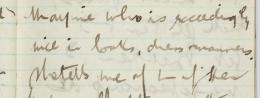 Maguire who is exceedingly
nice in looks, dress manners.
She tells me of 2 of her